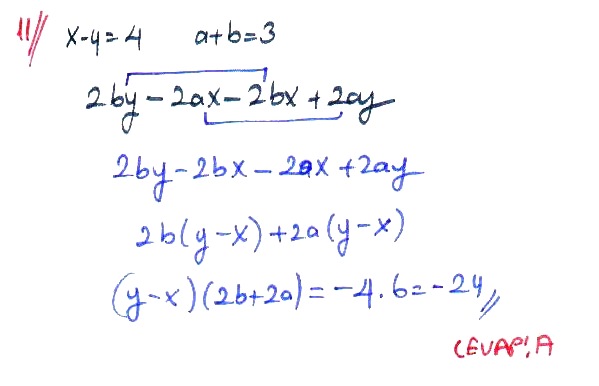 11// x-y=4 a+b=3
2by-2ax-2bx+2ay
2by-2bx-2ax+2ay
2b(y-x)+2a(y-x)
(y-x)(2b+2a)=-4.6=-24//
CEVAP:A